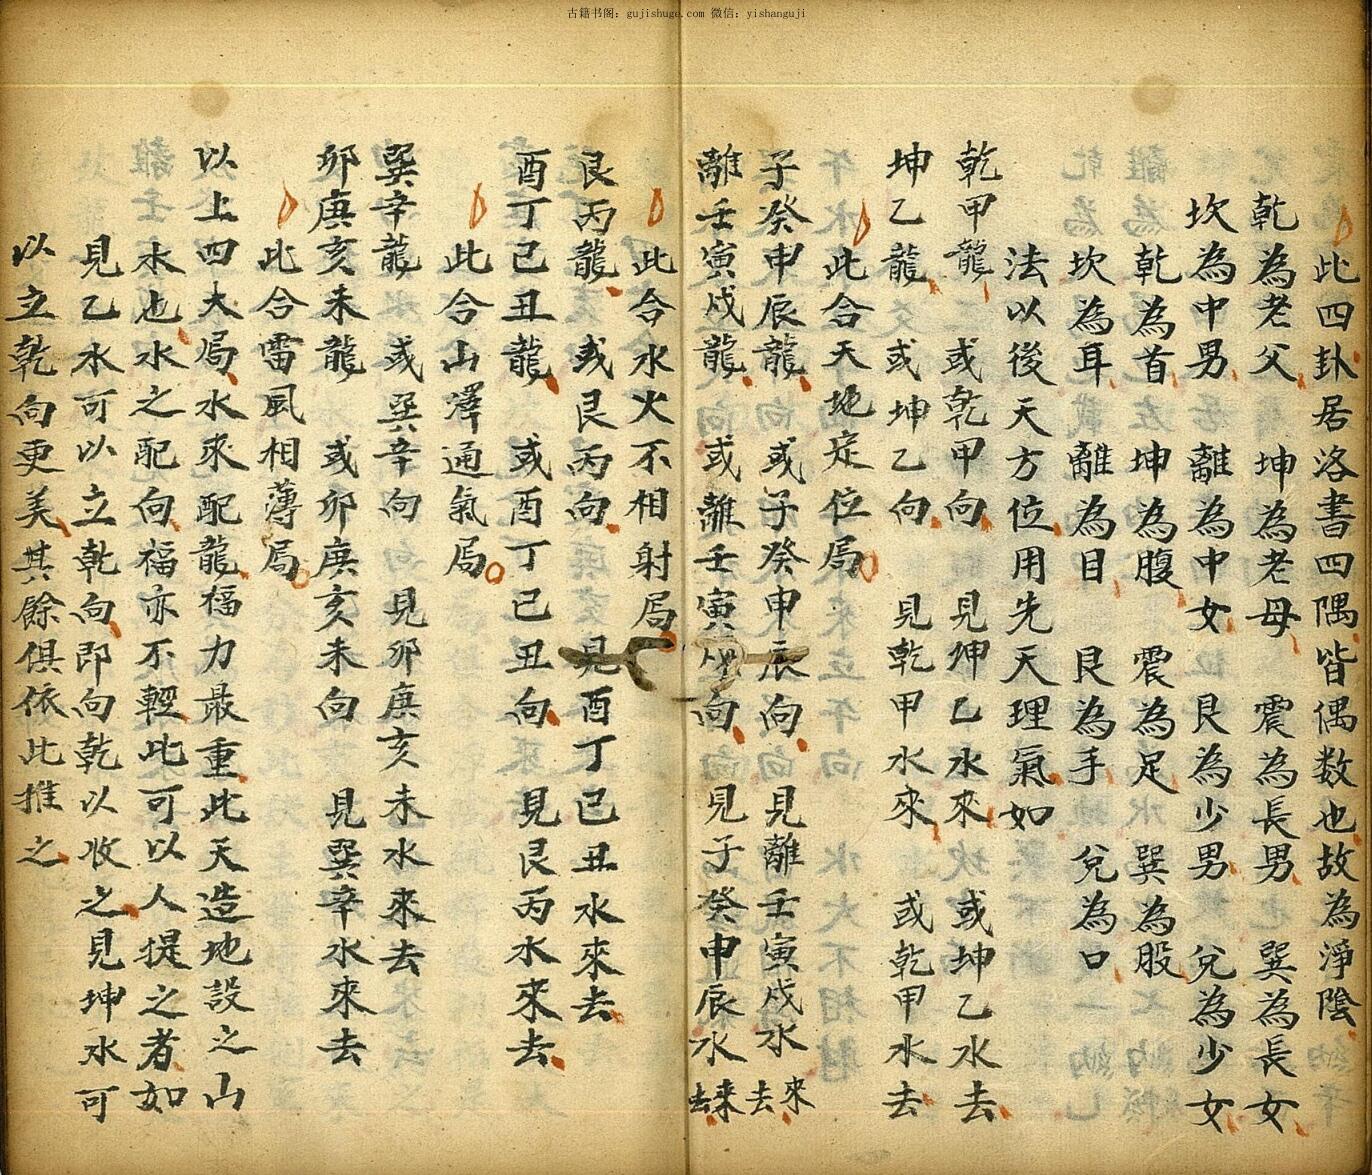 古籍书阁：gujishuge.com 微信：yishanguji
此四卦居洛書四隅皆偶数也故為淨陰
乾為老父 坤為老母 震為長男 巽為長女
坎為中男 離為中女 艮為少男 兌為少女
乾為首 坤為腹 震為足 巽為股
坎為耳 離為目 艮為手 兌為口
法以後天方位用先天理氣如
乾甲龍 或乾甲向 見坤乙水來 或坤乙水去
坤乙龍 或坤乙向 見乾甲水來 或乾甲水去
此合天地定位局
子癸申辰龍 或子癸申辰向 見離壬寅戍水來去
離壬寅戍龍 或離壬寅戍向 見子癸申辰水來去
此合水火不相射局
艮丙龍 或艮丙向 見酉丁己丑水來去
酉丁己丑龍 或酉丁己丑向 見艮丙水來去
此合山澤通氣局
巽辛龍 或巽辛向 見卯庚亥未水來去
卯庚亥未龍 或卯庚亥未向 見巽辛水來去
此合雷風相薄局
以上四大局水來配龍福力最重此天造地設之山
水也水之配向福亦不輕此可以人提之者如
見乙水可以立乾向即向乾以收之見坤水可
以立乾向更美其餘俱依此推之